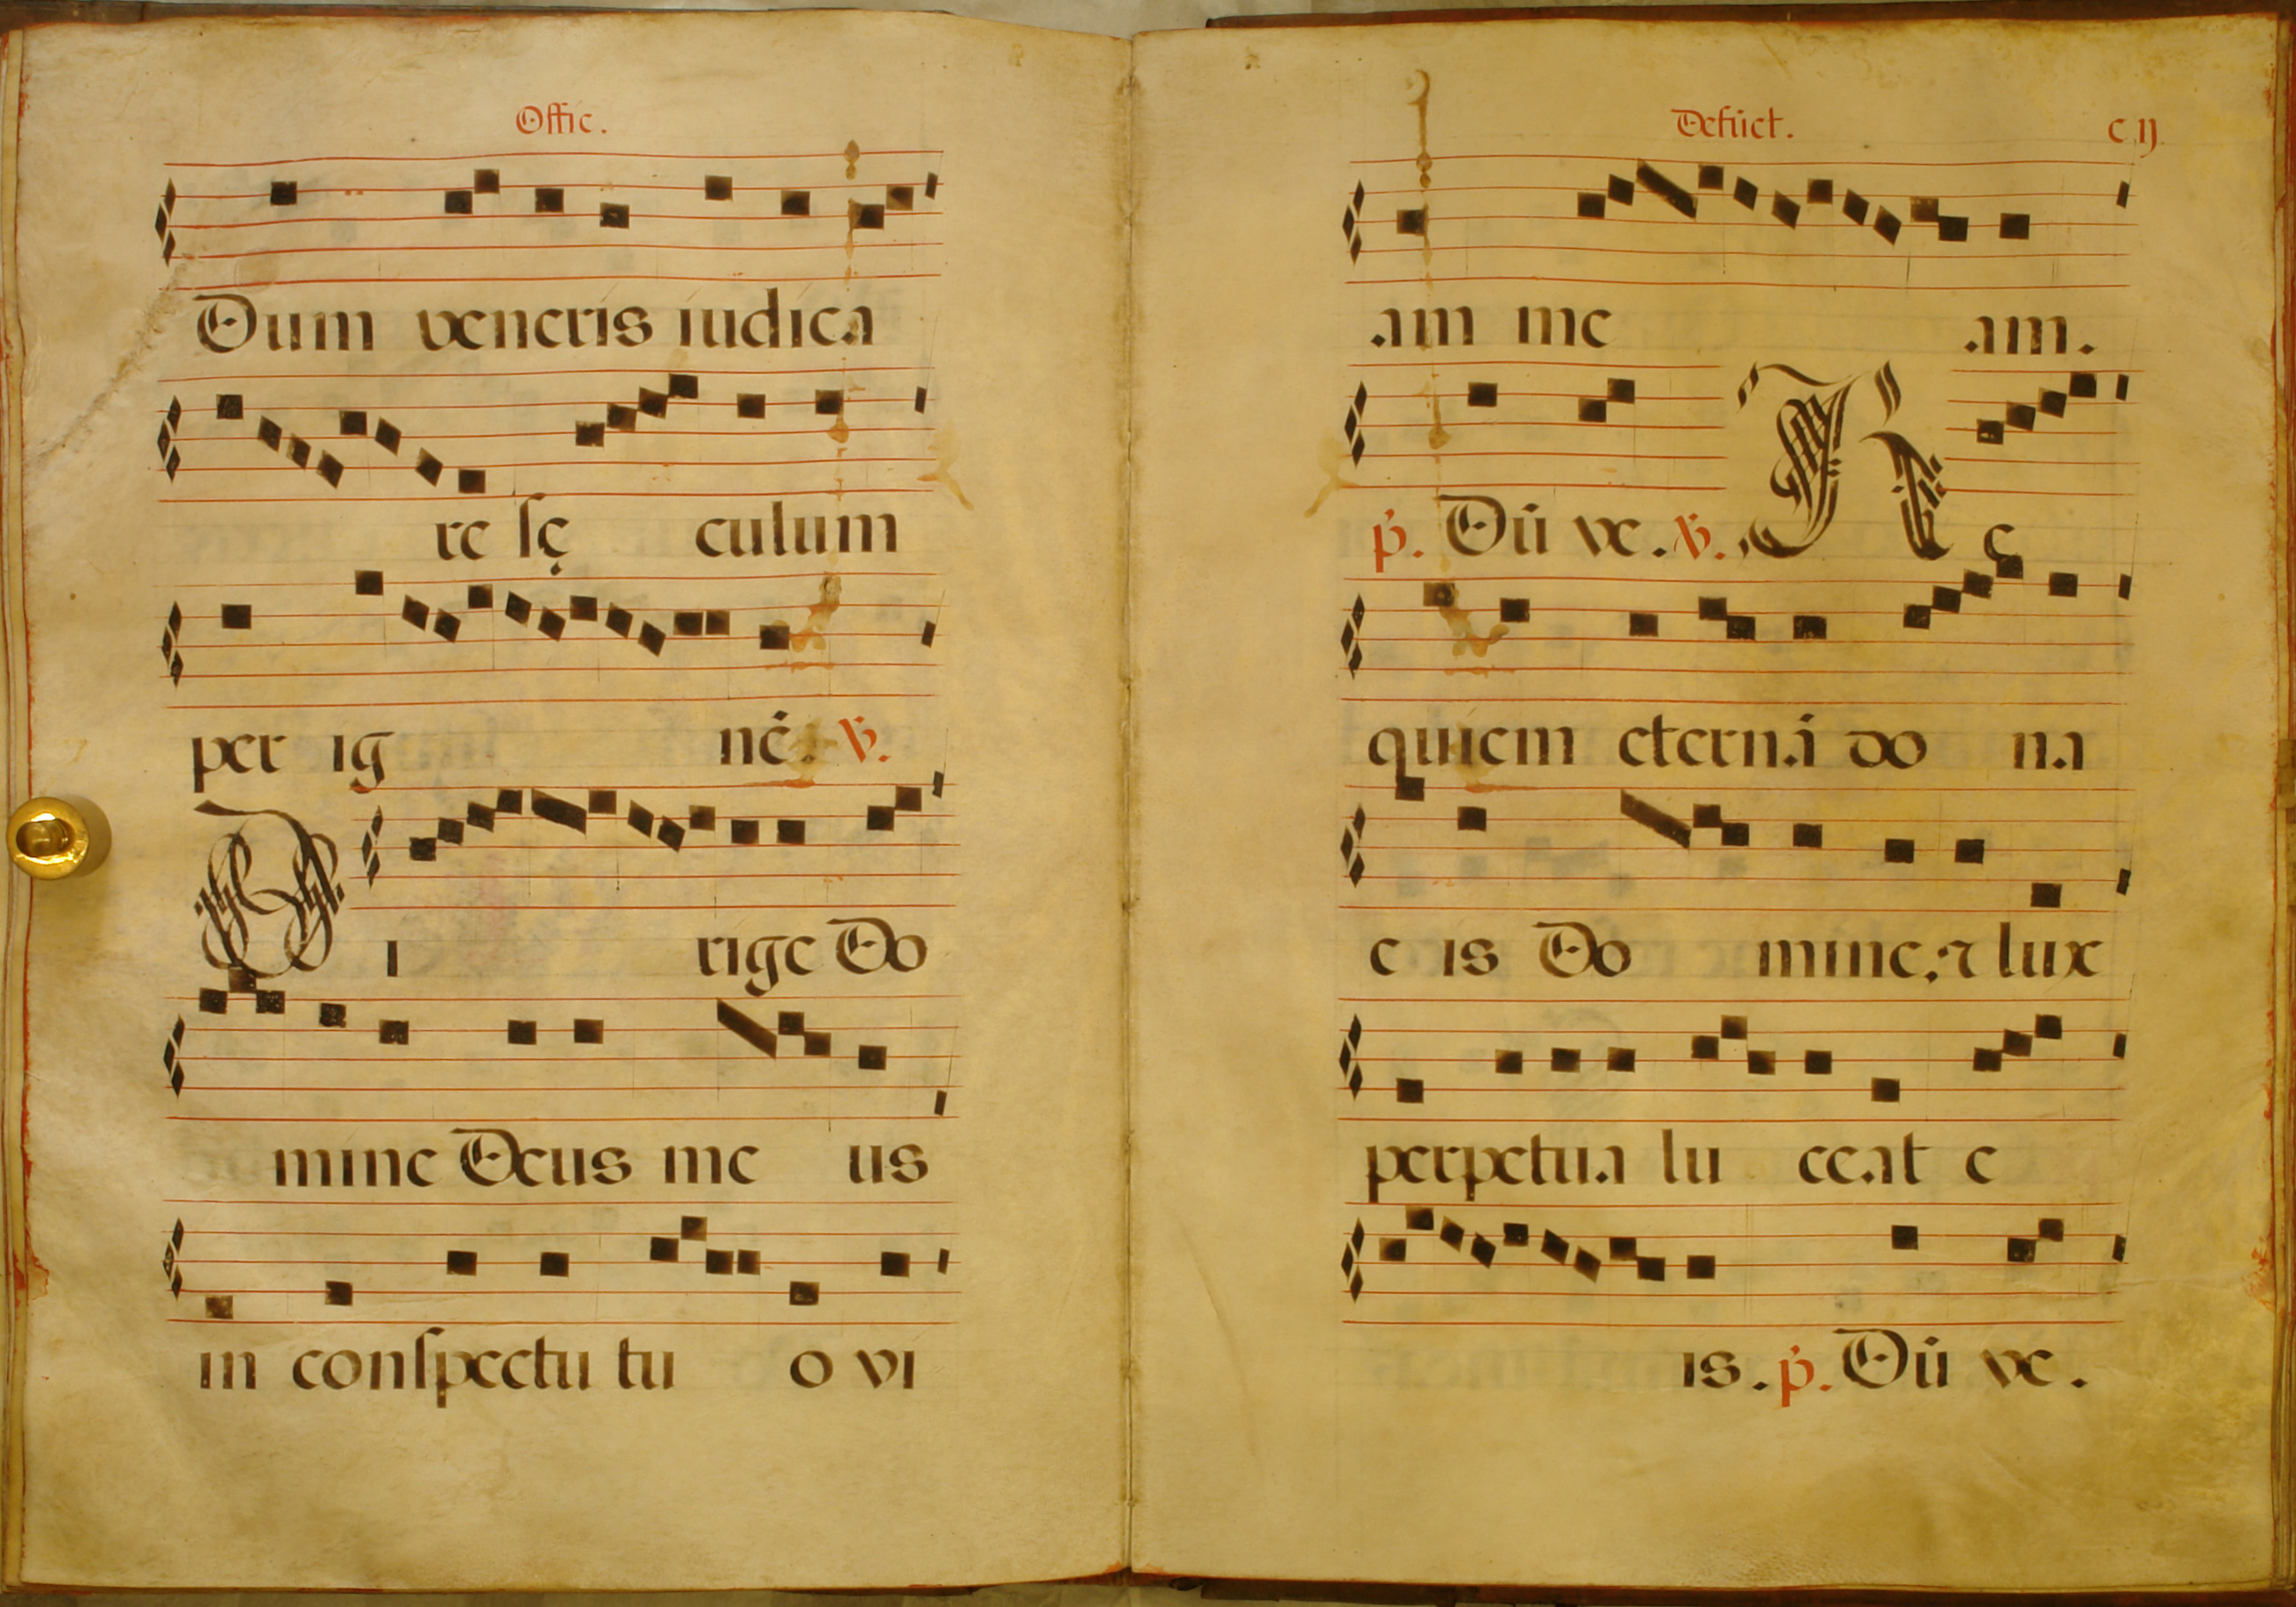 Offic.
Dum veneris iudica
re sę culum
per ig nē. ℣.
Di rige Do
mine Deus me us
in conſpectu tu o vi
Defūct. cij
am me am.
p̄. Dū ve. ℣. Re
quiem eternā do na
e is Do mine: ⁊ lux
perpetua lu ceat e
is. p̄. Dū ve.